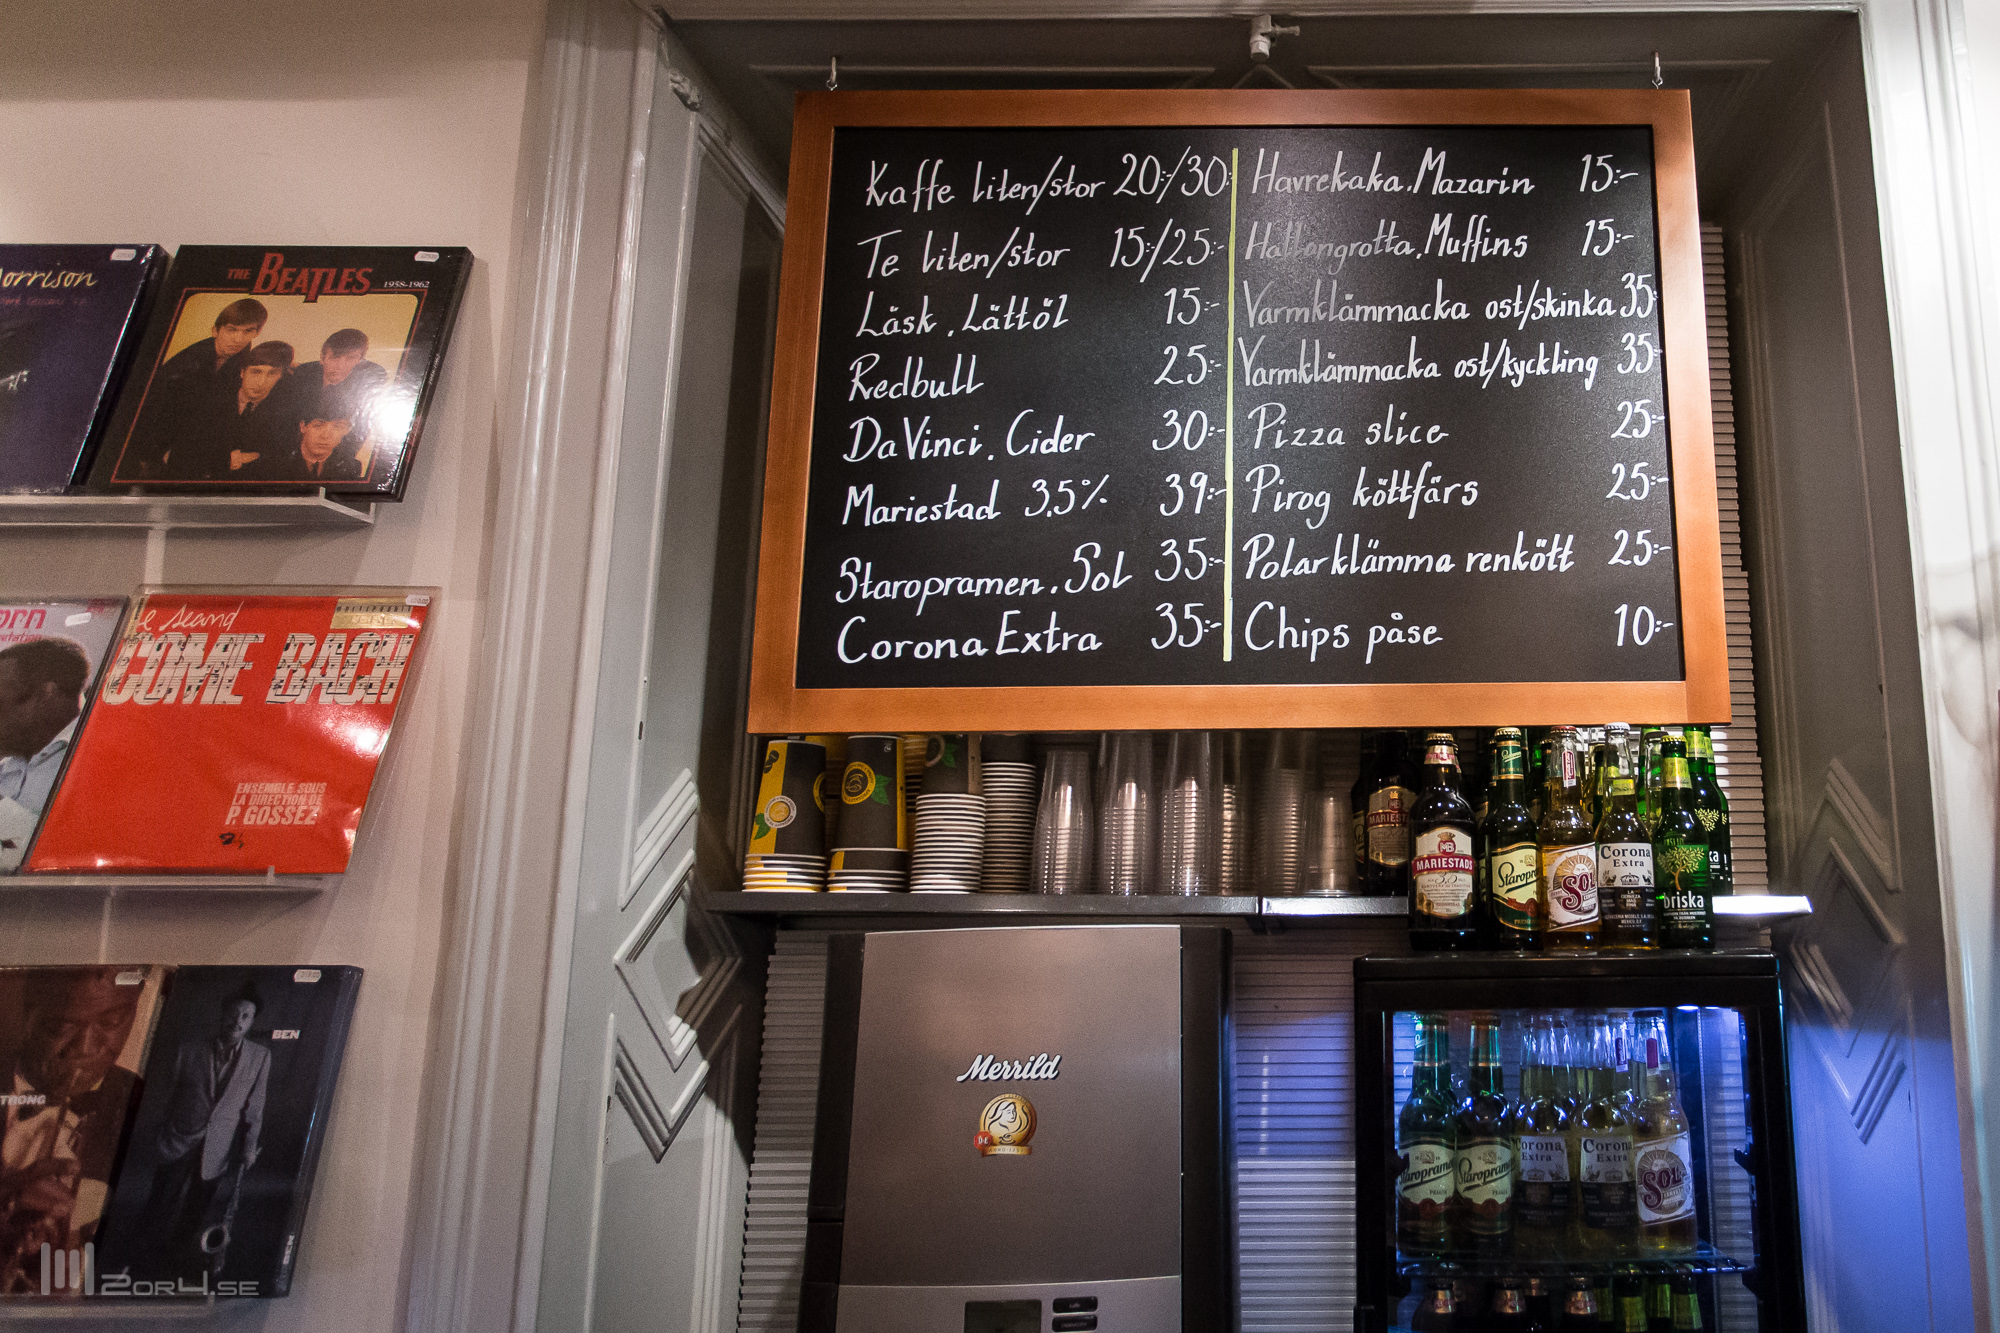 Kaffe liten/stor 20:/30:
Te liten/stor 15:/25:-
Läsk. Lättöl 15:-
Redbull 25:-
DaVinci. Cider 30:-
Mariestad 3,5% 39:-
Staropramen. Sol 35:-
Corona Extra 35:-
Havrekaka. Mazarin 15:-
Hallongrotta. Muffins 15:-
Varmklämmacka ost/skinka 35:-
Varmklämmacka ost/kyckling 35:-
Pizza slice 25:-
Pirog köttfärs 25:-
Polarklämma renkött 25:-
Chips påse 10:-
orrison
THE BEATLES 1958-1962
orn
e second
COME BACH
ENSEMBLE SOUS
LA DIRECTION DE
P. GOSSEZ
TRONG
BEN
BEN
MARIESTADS
3,5
Staropra
SOL
Corona
Extra
briska
Merrild
Staropramen
Staropramen
Corona
Extra
Corona
Extra
SOL
2or4.se